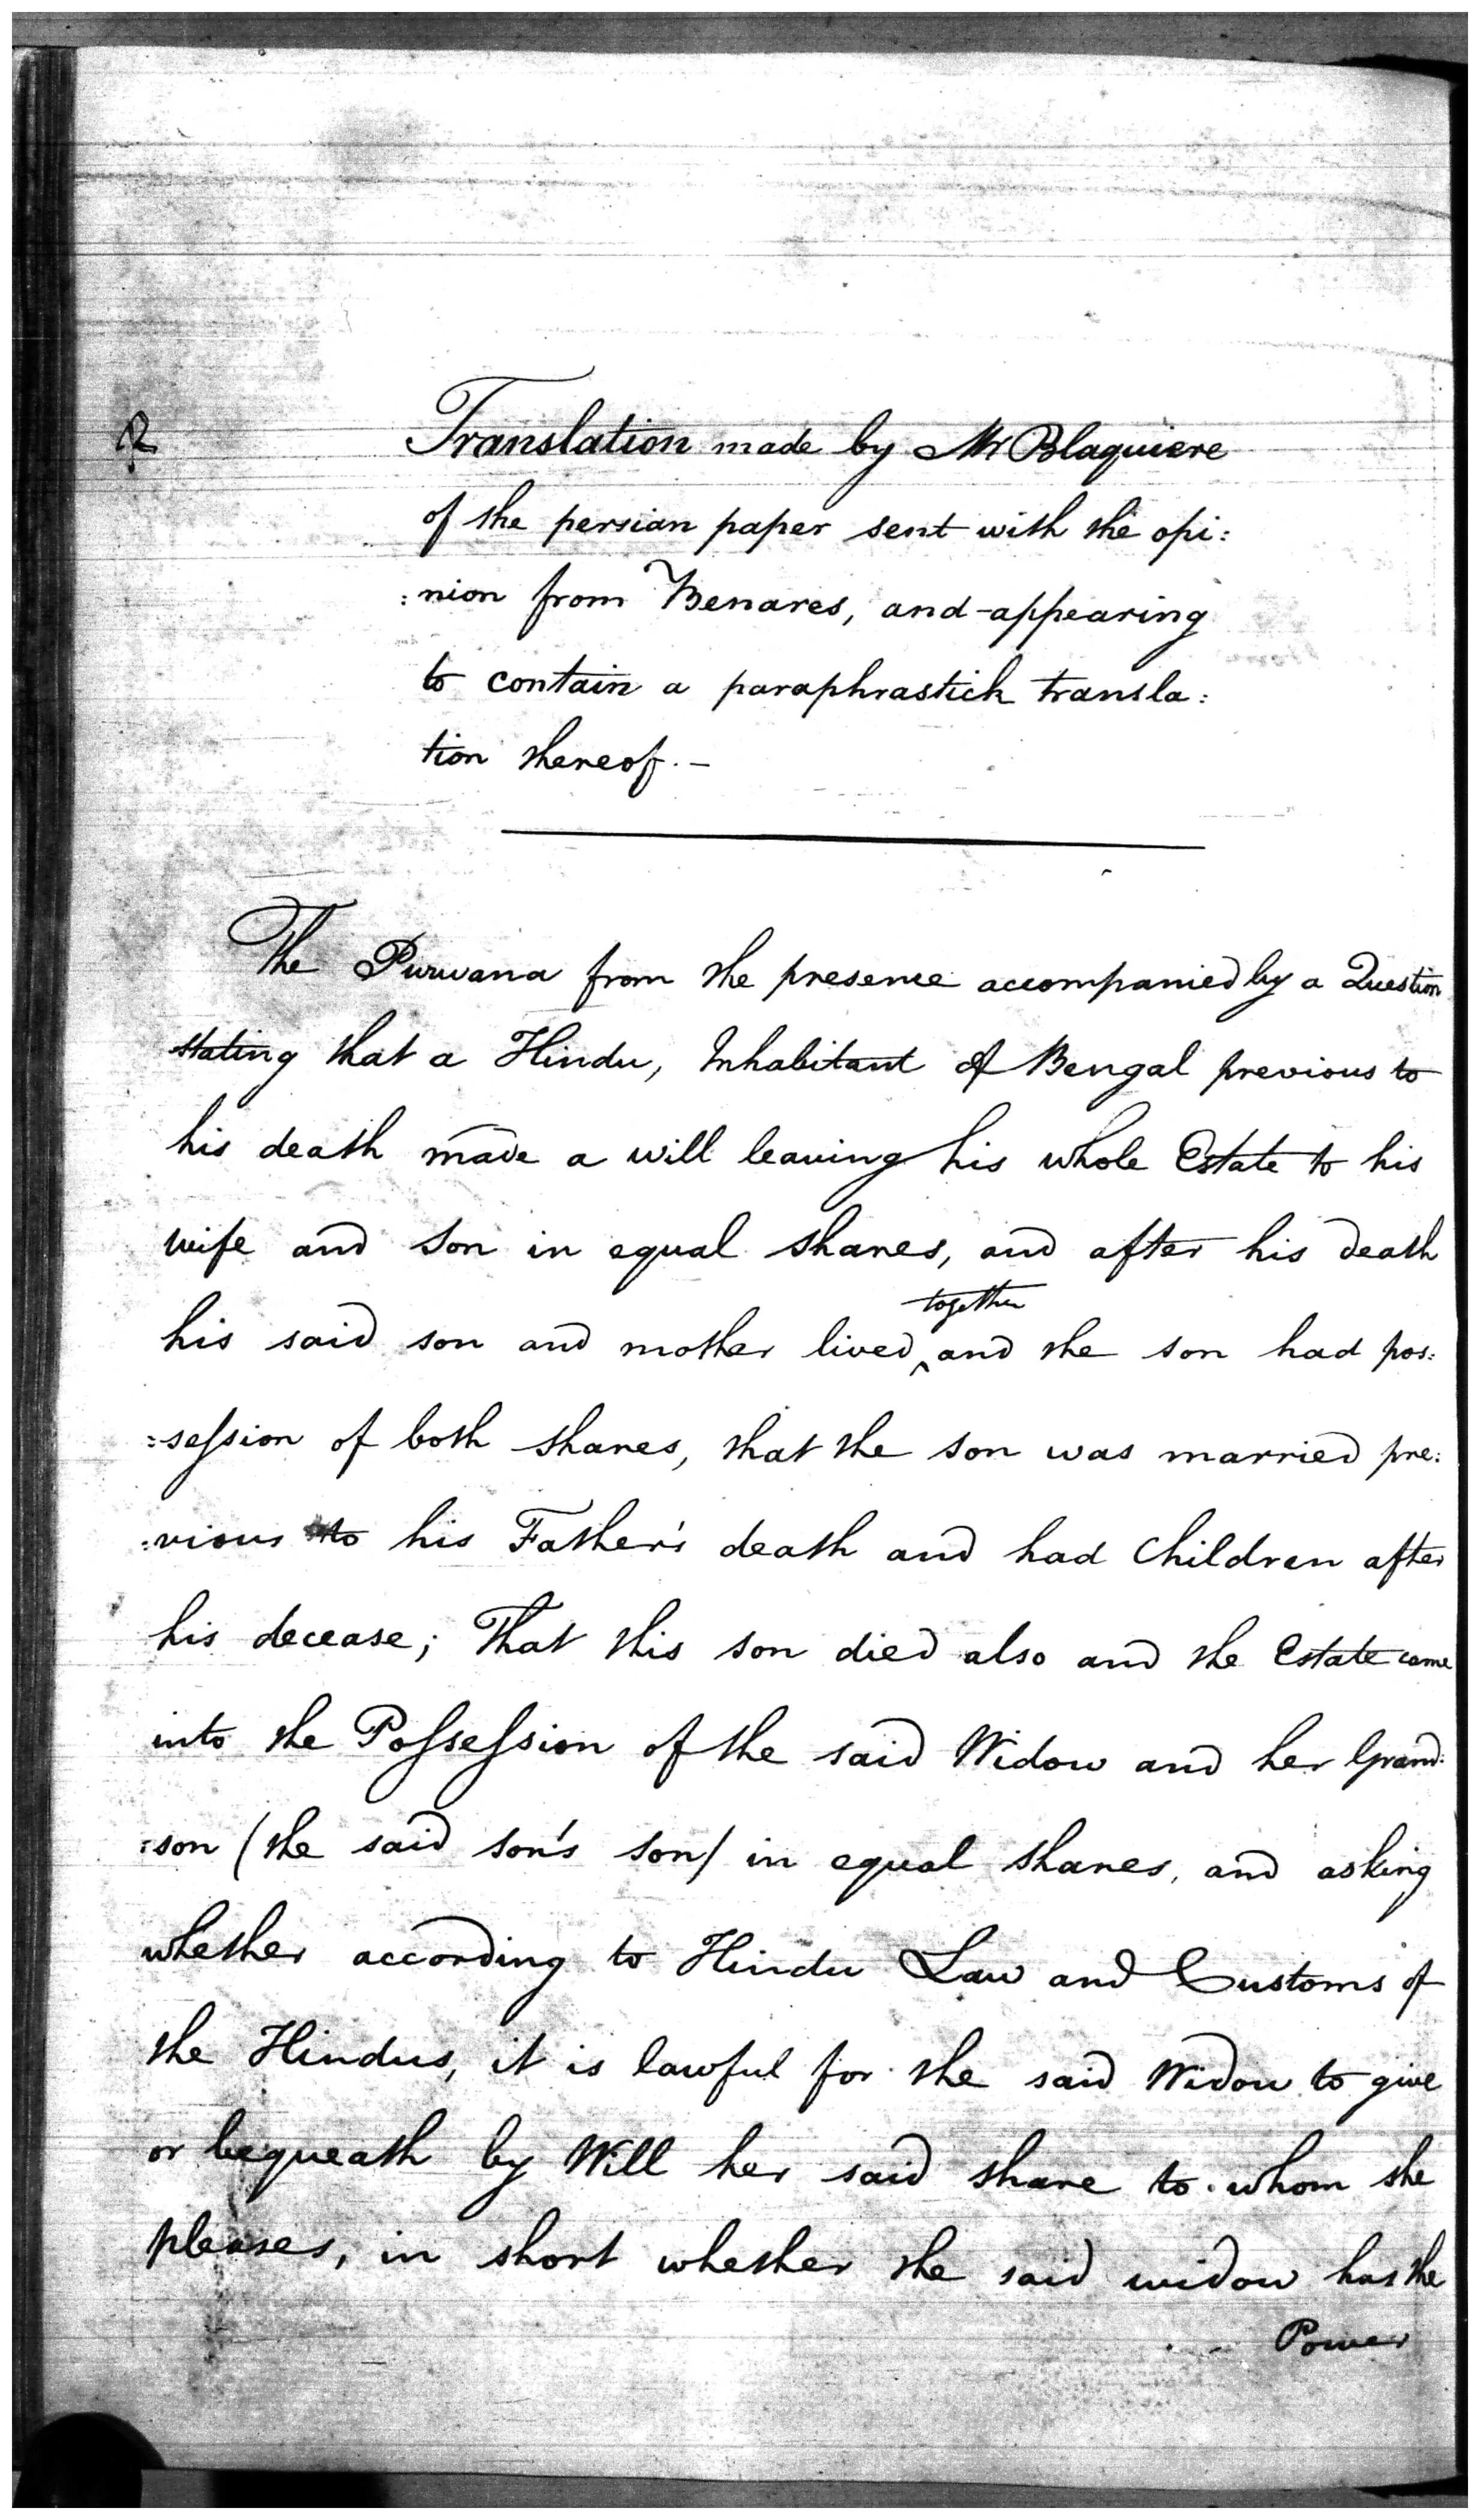 Translation made by Mr Blaquiere
of the persian paper sent with the opi:
:nion from Benares, and appearing
to contain a paraphrastick transla:
tion thereof. –
The Purwana from the presence accompanied by a Question
stating that a Hindu, Inhabitant of Bengal previous to
his death made a will leaving his whole Estate to his
wife and son in equal shares, and after his death
together
his said son and mother lived ‸ and the son had pos:
:seſsion of both shares, that the son was married pre:
:vious to his Father's death and had Children after
his decease; That this son died also and the Estate came
into the Poſseſsion of the said Widow and her Grand:
:son (the said son's son) in equal shares, and asking
whether according to Hindu Law and Customs of
the Hindus, it is lawful for the said Widow to give
or bequeath by Will her said share to whom she
pleases, in short whether the said widow has the
Power